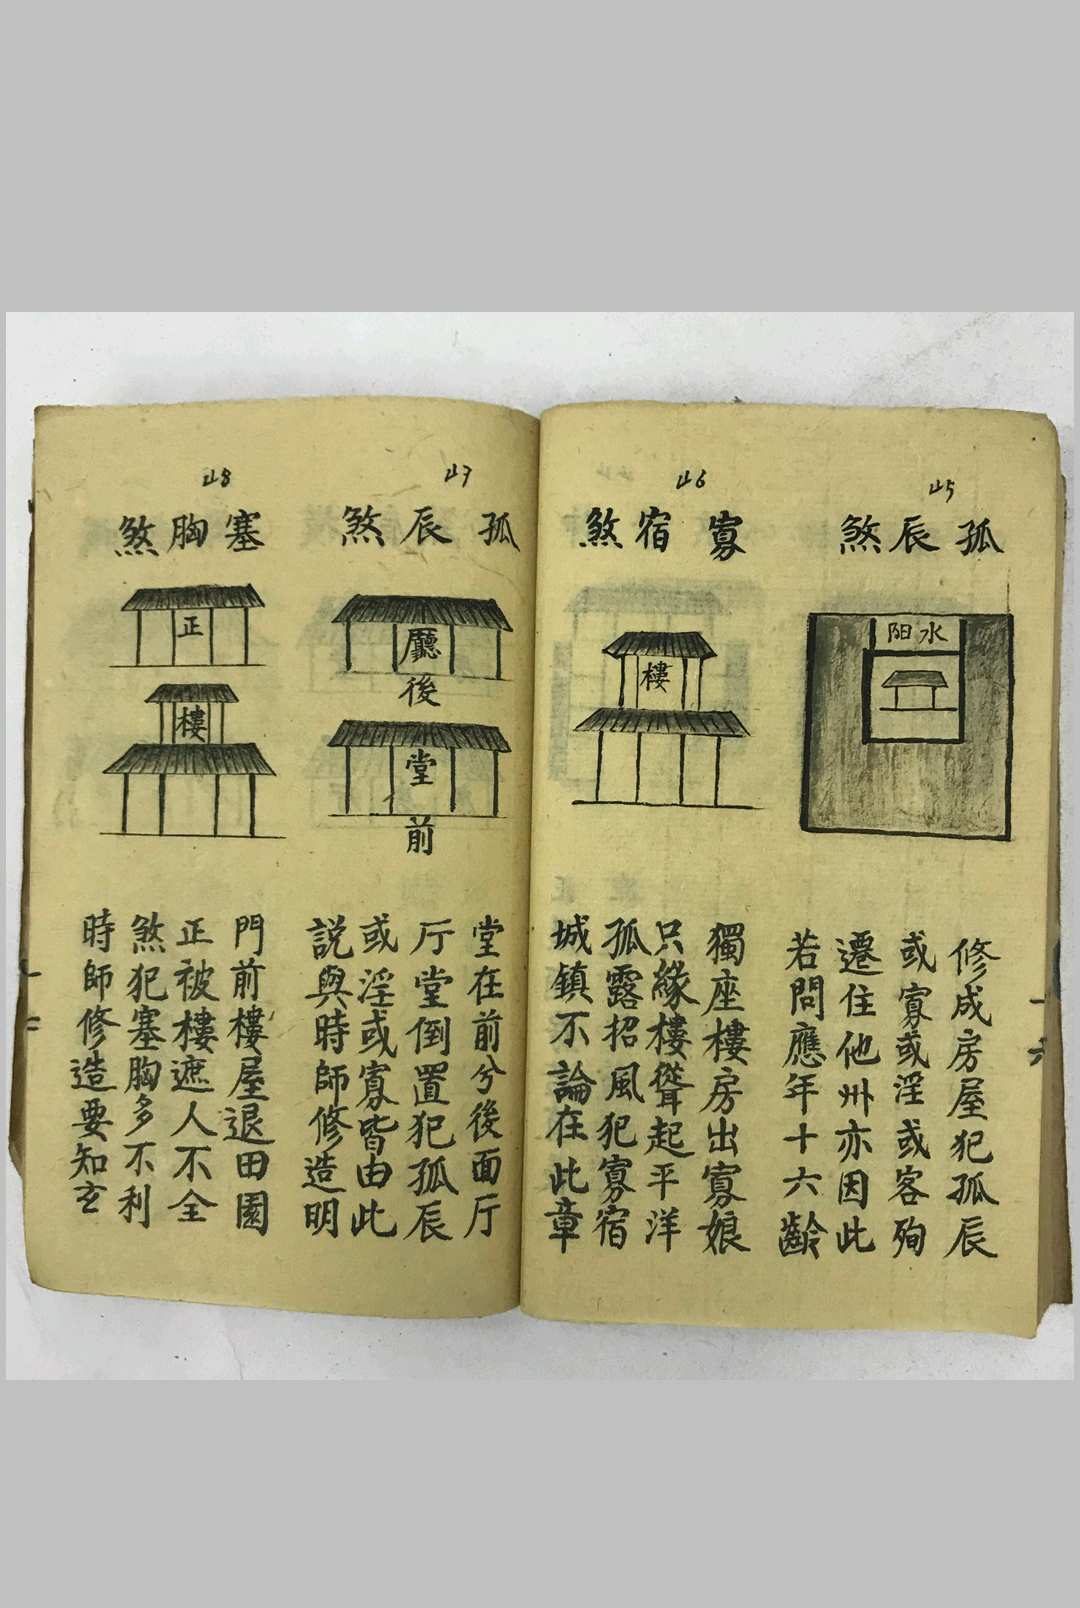 45
孤辰煞
水阳
修成房屋犯孤辰
或寡或淫或客殉
遷住他州亦因此
若問應年十六齡
46
寡宿煞
樓
獨座樓房出寡娘
只緣樓聳起平洋
孤露招風犯寡宿
城鎮不論在此章
47
孤辰煞
廳
後
堂
前
堂在前兮後面厅
厅堂倒置犯孤辰
或淫或寡皆由此
説與時師修造明
48
塞胸煞
正
樓
門前樓屋退田園
正被樓遮人不全
煞犯塞胸多不利
時師修造要知玄